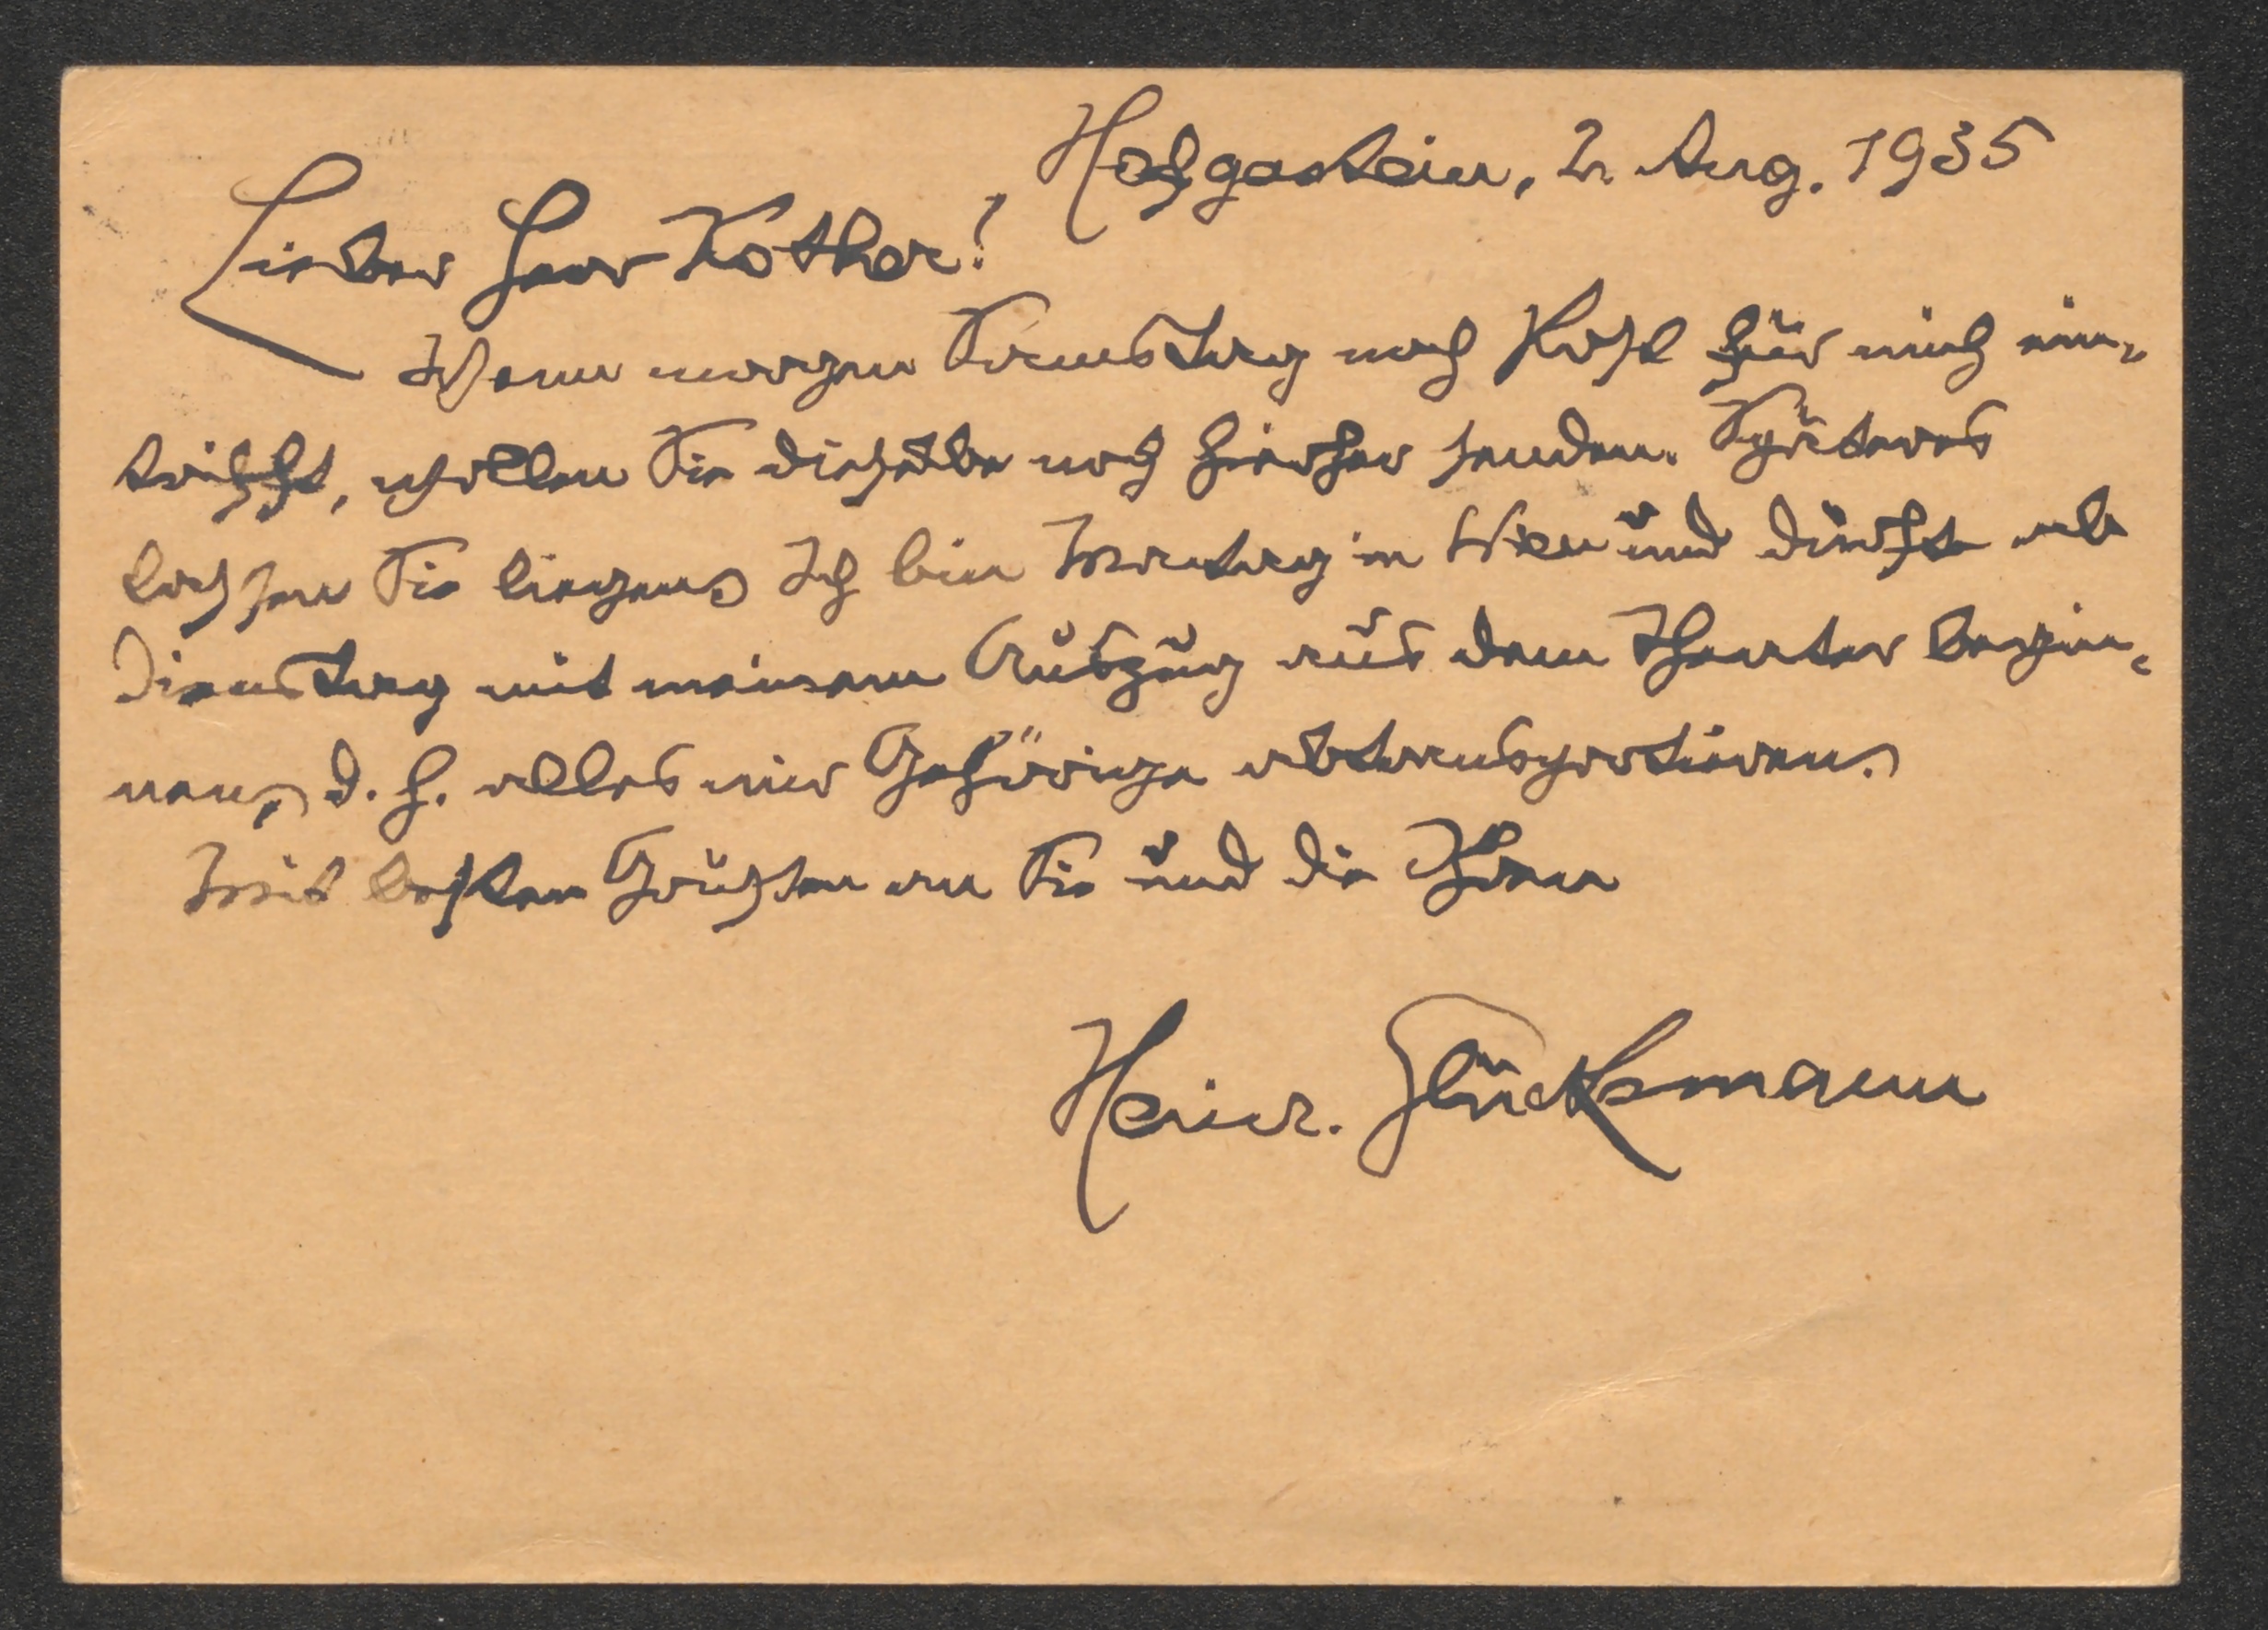 Hofgastein, 2. Aug. 1935
Lieber Herr Kother!
Wenn morgen Samstag noch Post für mich ein-
trifft, wollen Sie dieselbe noch hierher senden. Späteres
lassen Sie liegen. Ich bin Montag in Wien und dürfte ab
Dienstag mit meinem Auszug aus dem Theater begin-
nen, d. h. alles mir Gehörige abtransportieren.
Mit besten Grüssen an Sie und die Ihren
Heinr. Glücksmann